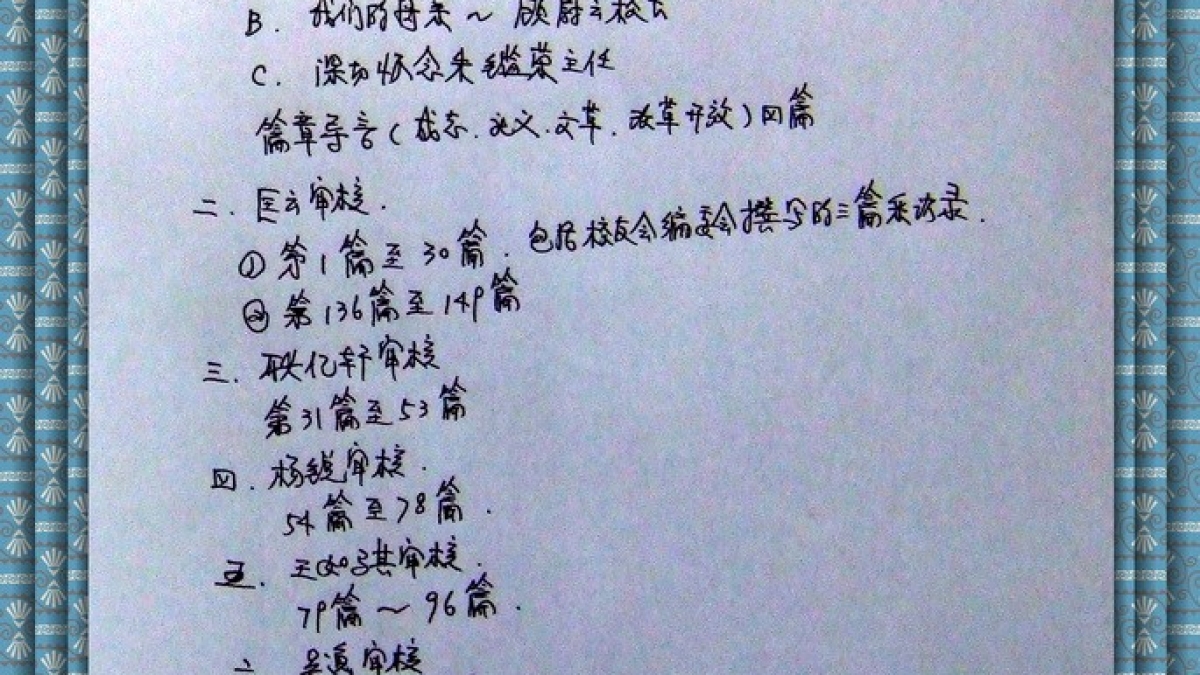 B. 我们的母亲~顾蔚云校长
C. 深切怀念朱钰荣主任
篇章导言(成志、北义、文革、改革开放)四篇
二. 匡云审核.
① 第1篇至30篇. 包括校友会编委会撰写的三篇采访录.
② 第136篇至149篇
三. 耿亿轩审核
第31篇至53篇
四. 杨锐审核.
54篇至78篇.
五. 王如其审核.
79篇~96篇.
审核